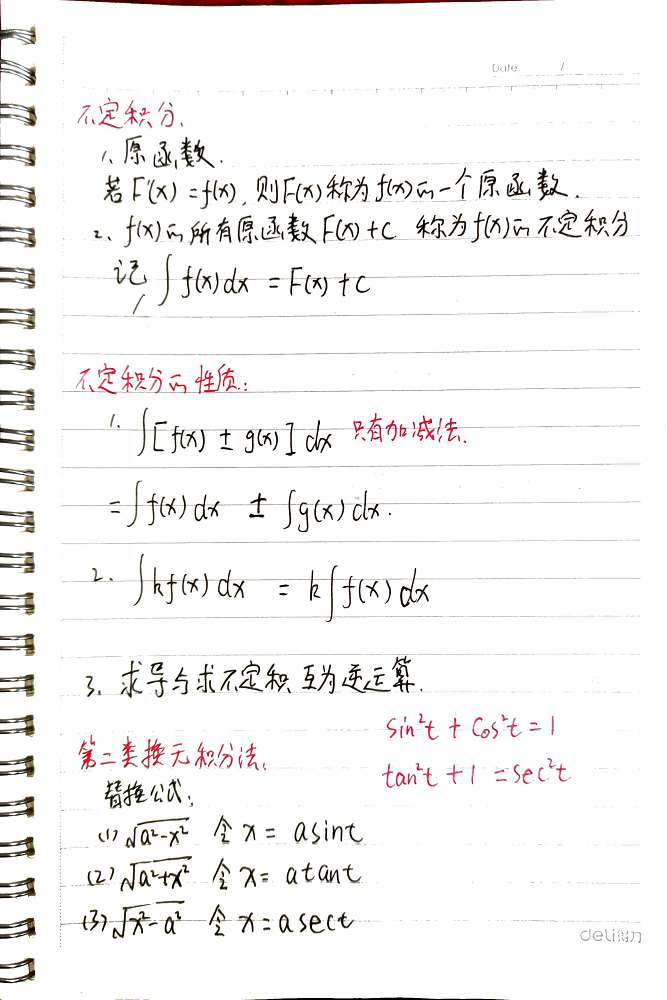 Date /
不定积分.
1、原函数.
若F'(x) = f(x), 则F(x)称为f(x)的一个原函数.
2、f(x)的所有原函数F(x)+C 称为f(x)的不定积分
记 ∫f(x)dx = F(x)+C
不定积分的性质:
1. ∫[f(x) ± g(x)]dx 只有加减法.
= ∫f(x)dx ± ∫g(x)dx.
2. ∫kf(x)dx = k∫f(x)dx
3. 求导与求不定积 互为逆运算.
sin²t + cos²t = 1
第二类换元积分法.
tan²t + 1 = sec²t
替换公式:
(1) √a²-x² 令 x = asint
(2) √a²+x² 令 x = atant
(3) √x²-a² 令 x = asect
deli得力